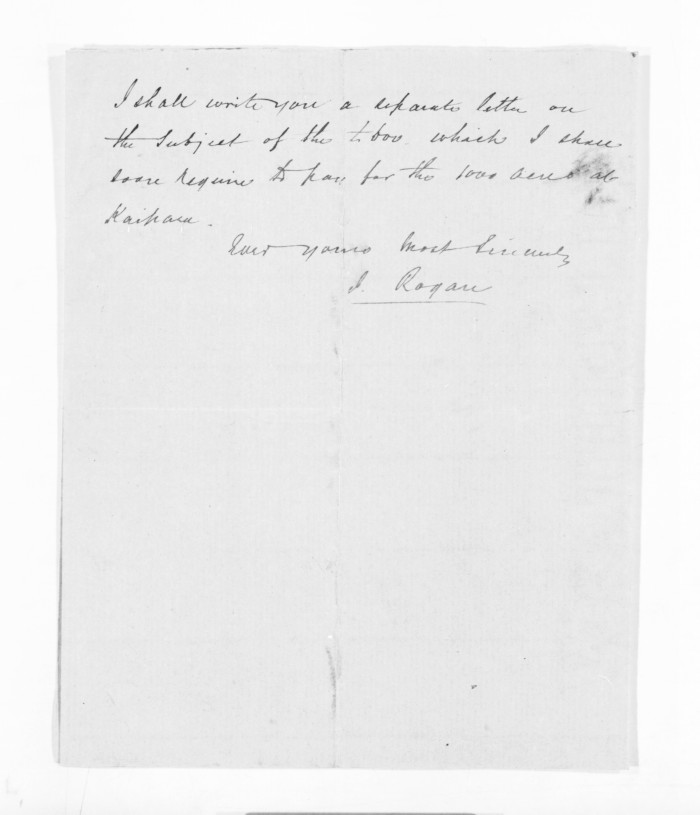 I shall write you a separate letter on
the Subject of the £600 which I shall
soon require to pay for the 1000 acres at
Kaipara.
Ever yours most Sincerely
J. Rogan